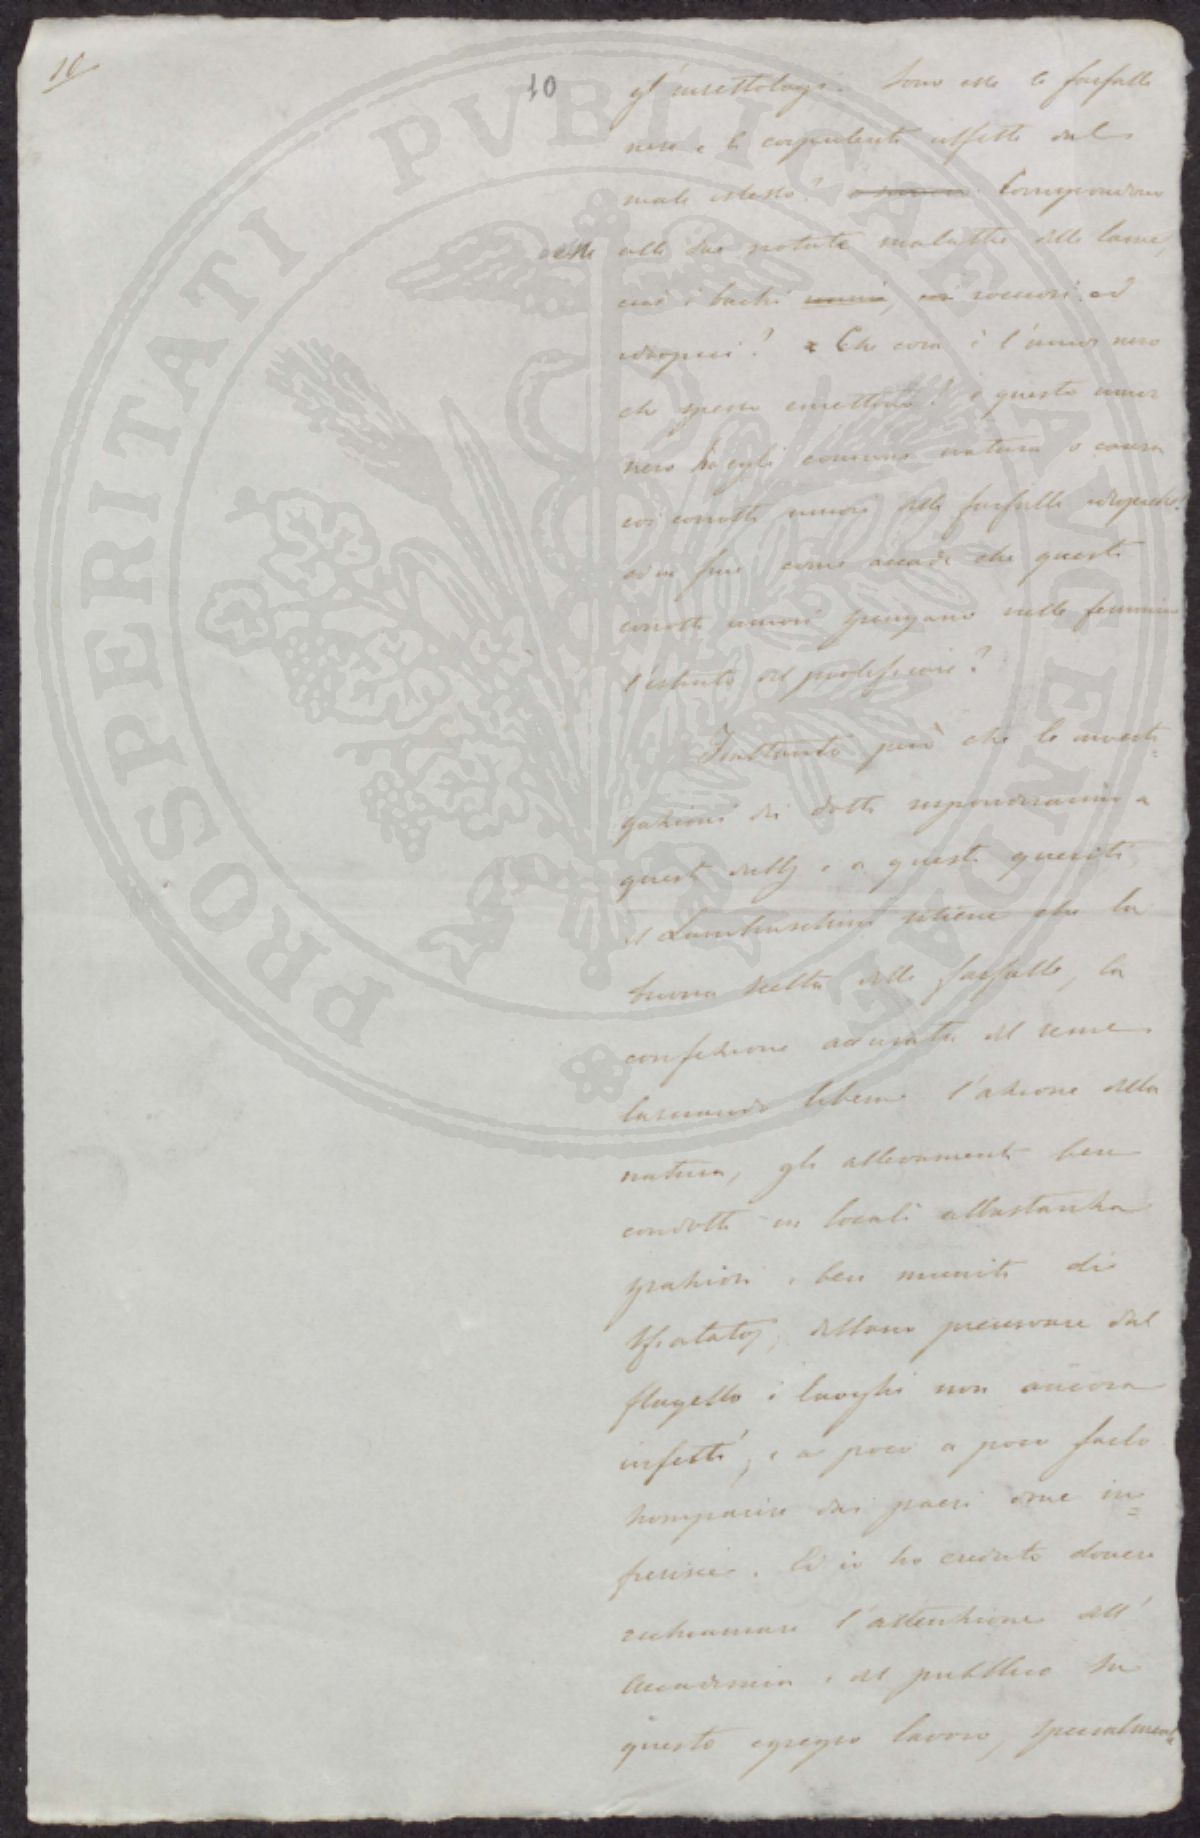 10
10
gl'insettologi. Sono esse le farfalle
nere e le corpulente affette dal
male istesso? Corrispondono
esse alle due notate malattie delle larve,
cioè i bachi riccioni ed
idropici? Che cosa è l'umor nero
che spesso emettono? e questo umor
nero ha egli comune natura o causa
coi corrotti umori delle farfalle idropiche?
ed in fine come accade che questi
corrotti umori spengano nelle femmine
l'istinto del prolificare?
Frattanto però che le investi=
gazioni dei dotti risponderanno a
questi dubbj e a questi quesiti,
il Lambruschini ritiene che la
buona scelta delle farfalle, la
confezione accurata del seme
lasciando libera l'azione della
natura, gli allevamenti ben
condotti in locali abbastanza
spaziosi e ben muniti di
sfiatatoj, debbano preservare dal
flagello i luoghi non ancora
infetti, e a poco a poco farlo
scomparire dai paesi ove in=
fierisce. Ed io ho creduto dovere
richiamare l'attenzione dell'
Accademia e del pubblico su
questo egregio lavoro, specialmente
PROSPERITATI PVBLICAE AVGENDAE